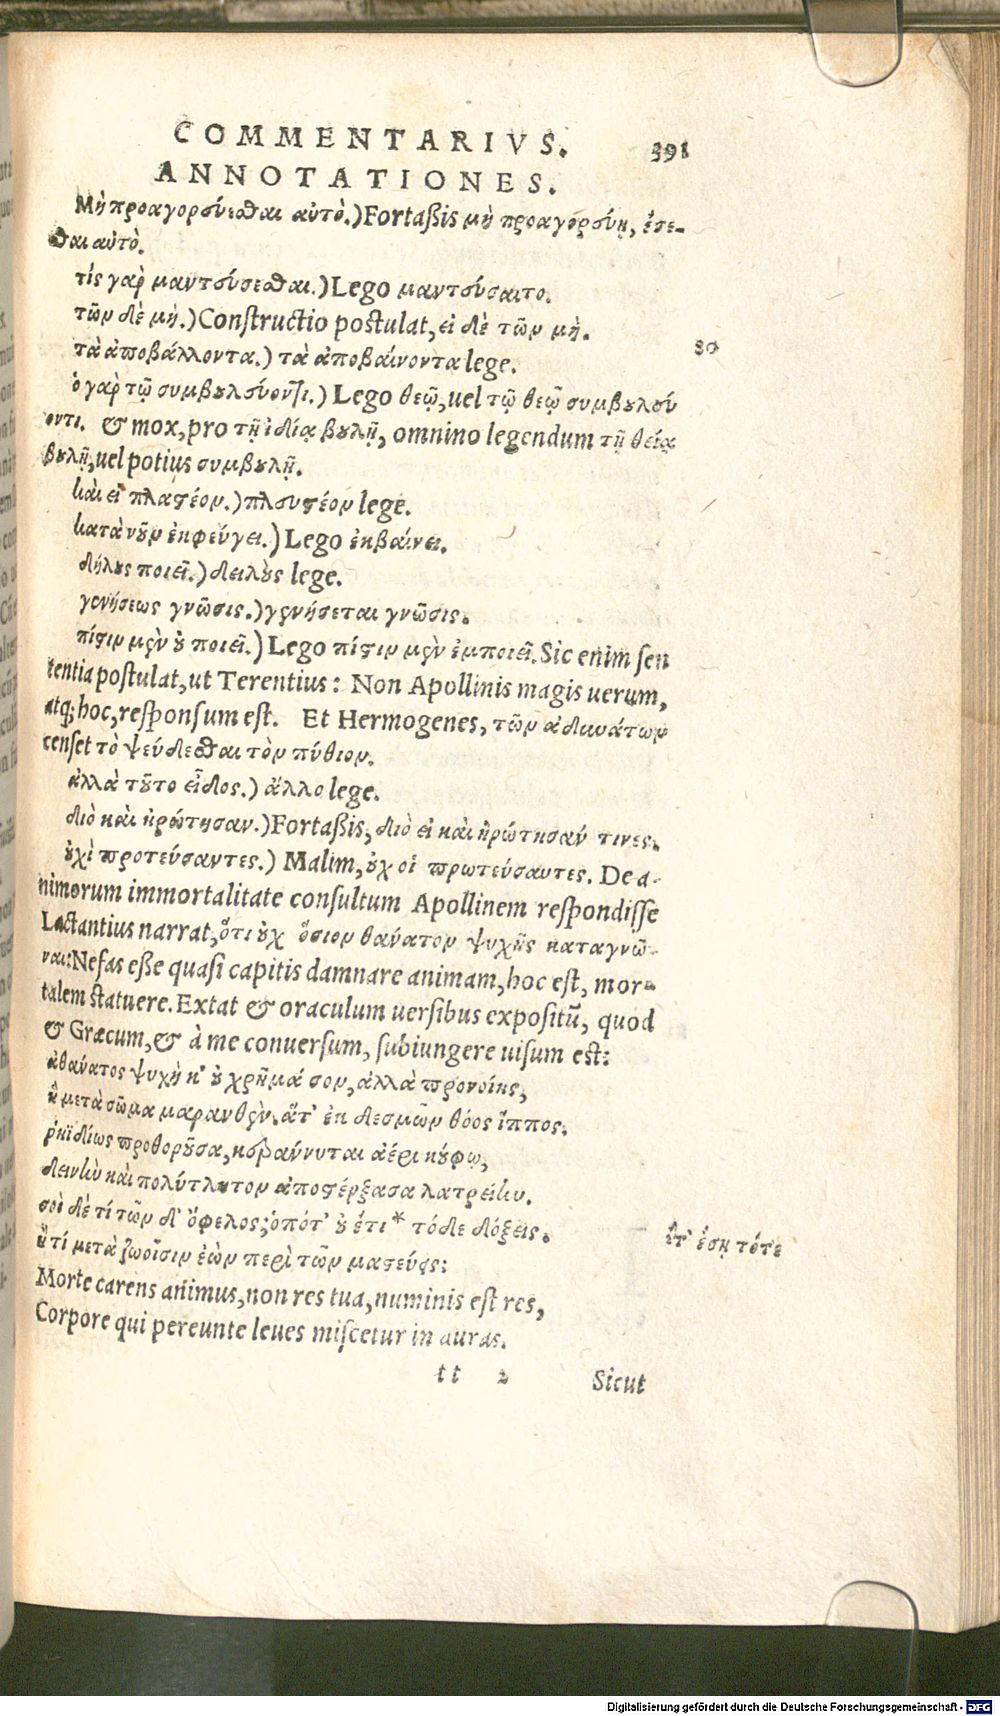 COMMENTARIVS. 391
ANNOTATIONES.
Μὴ προαγορεύεσθαι αὐτό.) Fortaßis μὴ προαγορεύῃ, ἔσε-
σθαι αὐτό.
τίς γὰρ μαντεύσεσθαι.) Lego μαντεύσαιτο.
τῶν δὲ μή.) Constructio postulat, εἰ δὲ τῶν μὴ.
τὰ ἀποβάλλοντα.) τὰ ἀποβαίνοντα lege. 30
ὁ γὰρ τῷ συμβουλεύοντι.) Lego θεῷ, uel τῷ θεῷ συμβουλεύ
οντι. & mox, pro τῇ ἰδίᾳ βουλῇ, omnino legendum τῇ θείᾳ
βουλῇ, uel potius συμβουλῇ.
καὶ εἰ πλαστέον.) πλευστέον lege.
κατὰ νοῦν ἐκφεύγει.) Lego ἐκβαίνει.
δήλους ποιεῖ.) δειλοὺς lege.
γενήσεως γνῶσις.) γενήσεται γνῶσις.
πίστιν μὲν οὐ ποιεῖ.) Lego πίστιν μὲν ἐμποιεῖ. Sic enim sen
tentia postulat, ut Terentius: Non Apollinis magis uerum,
atq; hoc, responsum est. Et Hermogenes, τῶν ἀδυνάτων
censet τὸ ψεύδεσθαι τὸν πύθιον.
ἀλλὰ τοῦτο εἶδος.) ἄλλο lege.
διὸ καὶ ἠρώτησαν.) Fortaßis, διὸ εἰ καὶ ἠρώτησάν τινες.
οὐχὶ προτεύσαντες.) Malim, οὐχ οἱ πρωτεύσαντες. De a-
nimorum immortalitate consultum Apollinem respondisse
Lactantius narrat, ὅτι οὐχ ὅσιον θανάτον ψυχῆς καταγνῶ-
ναι: Nefas eße quasi capitis damnare animam, hoc est, mor-
talem statuere. Extat & oraculum uersibus expositū, quod
& Græcum, & à me conuersum, subiungere uisum est:
ἀθάνατος ψυχὴ κ' οὐ χρῆμά σον, ἀλλὰ προνοίης,
ἣ μετὰ σῶμα μαρανθὲν, ἅτ' ἐκ δεσμῶν θόος ἵππος,
ῥηϊδίως προθοροῦσα, κεράννυται ἀέρι κούφῳ,
δεινὴν καὶ πολύτλητον ἀποστέρξασα λατρείην.
σοὶ δὲ τί τῶν δ' ὄφελος; ὁπότ' οὐ ἔτι * τόδε δόξεις. ἔτ' ἔσῃ τότε
ἢ τί μετὰ ζωοῖσιν ἐὼν περὶ τῶν ματεύεις;
Morte carens animus, non res tua, numinis est res,
Corpore qui pereunte leues miscetur in auras.
tt 2 Sicut
Digitalisierung gefördert durch die Deutsche Forschungsgemeinschaft - DFG